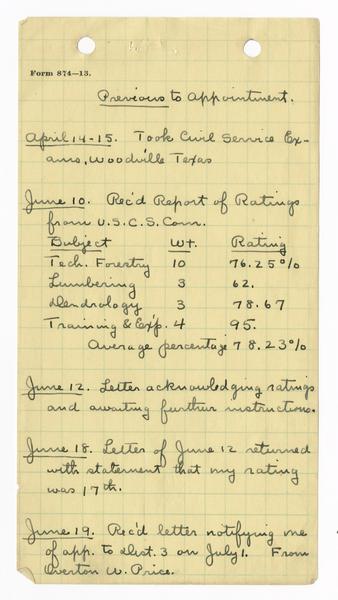 Form 874—13.
Previous to Appointment.
April 14-15. Took Civil Service Ex-
ams, Woodville Texas
June 10. Rec'd Report of Ratings
from U.S.C.S. Com.
Subject Wt. Rating
Tech. Forestry 10 76.25%
Lumbering 3 62.
Dendrology 3 78.67
Training & Exp. 4 95.
Average percentage 78.23%
June 12. Letter acknowledging ratings
and awaiting further instructions.
June 18. Letter of June 12 returned
with statement that my rating
was 17th.
June 19. Rec'd letter notifying me
of app. to Dist. 3 on July 1. From
Overton W. Price.